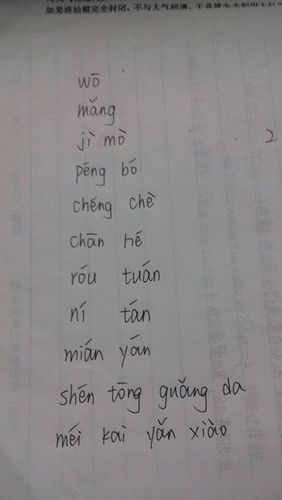 如果将油箱完全封闭，不与大气相通，
wō
mǎng
jì mò 2
péng bó
chéng chè
chān hé
róu tuán
ní tán
mián yán
shén tōng guǎng da
méi kai yǎn xiào